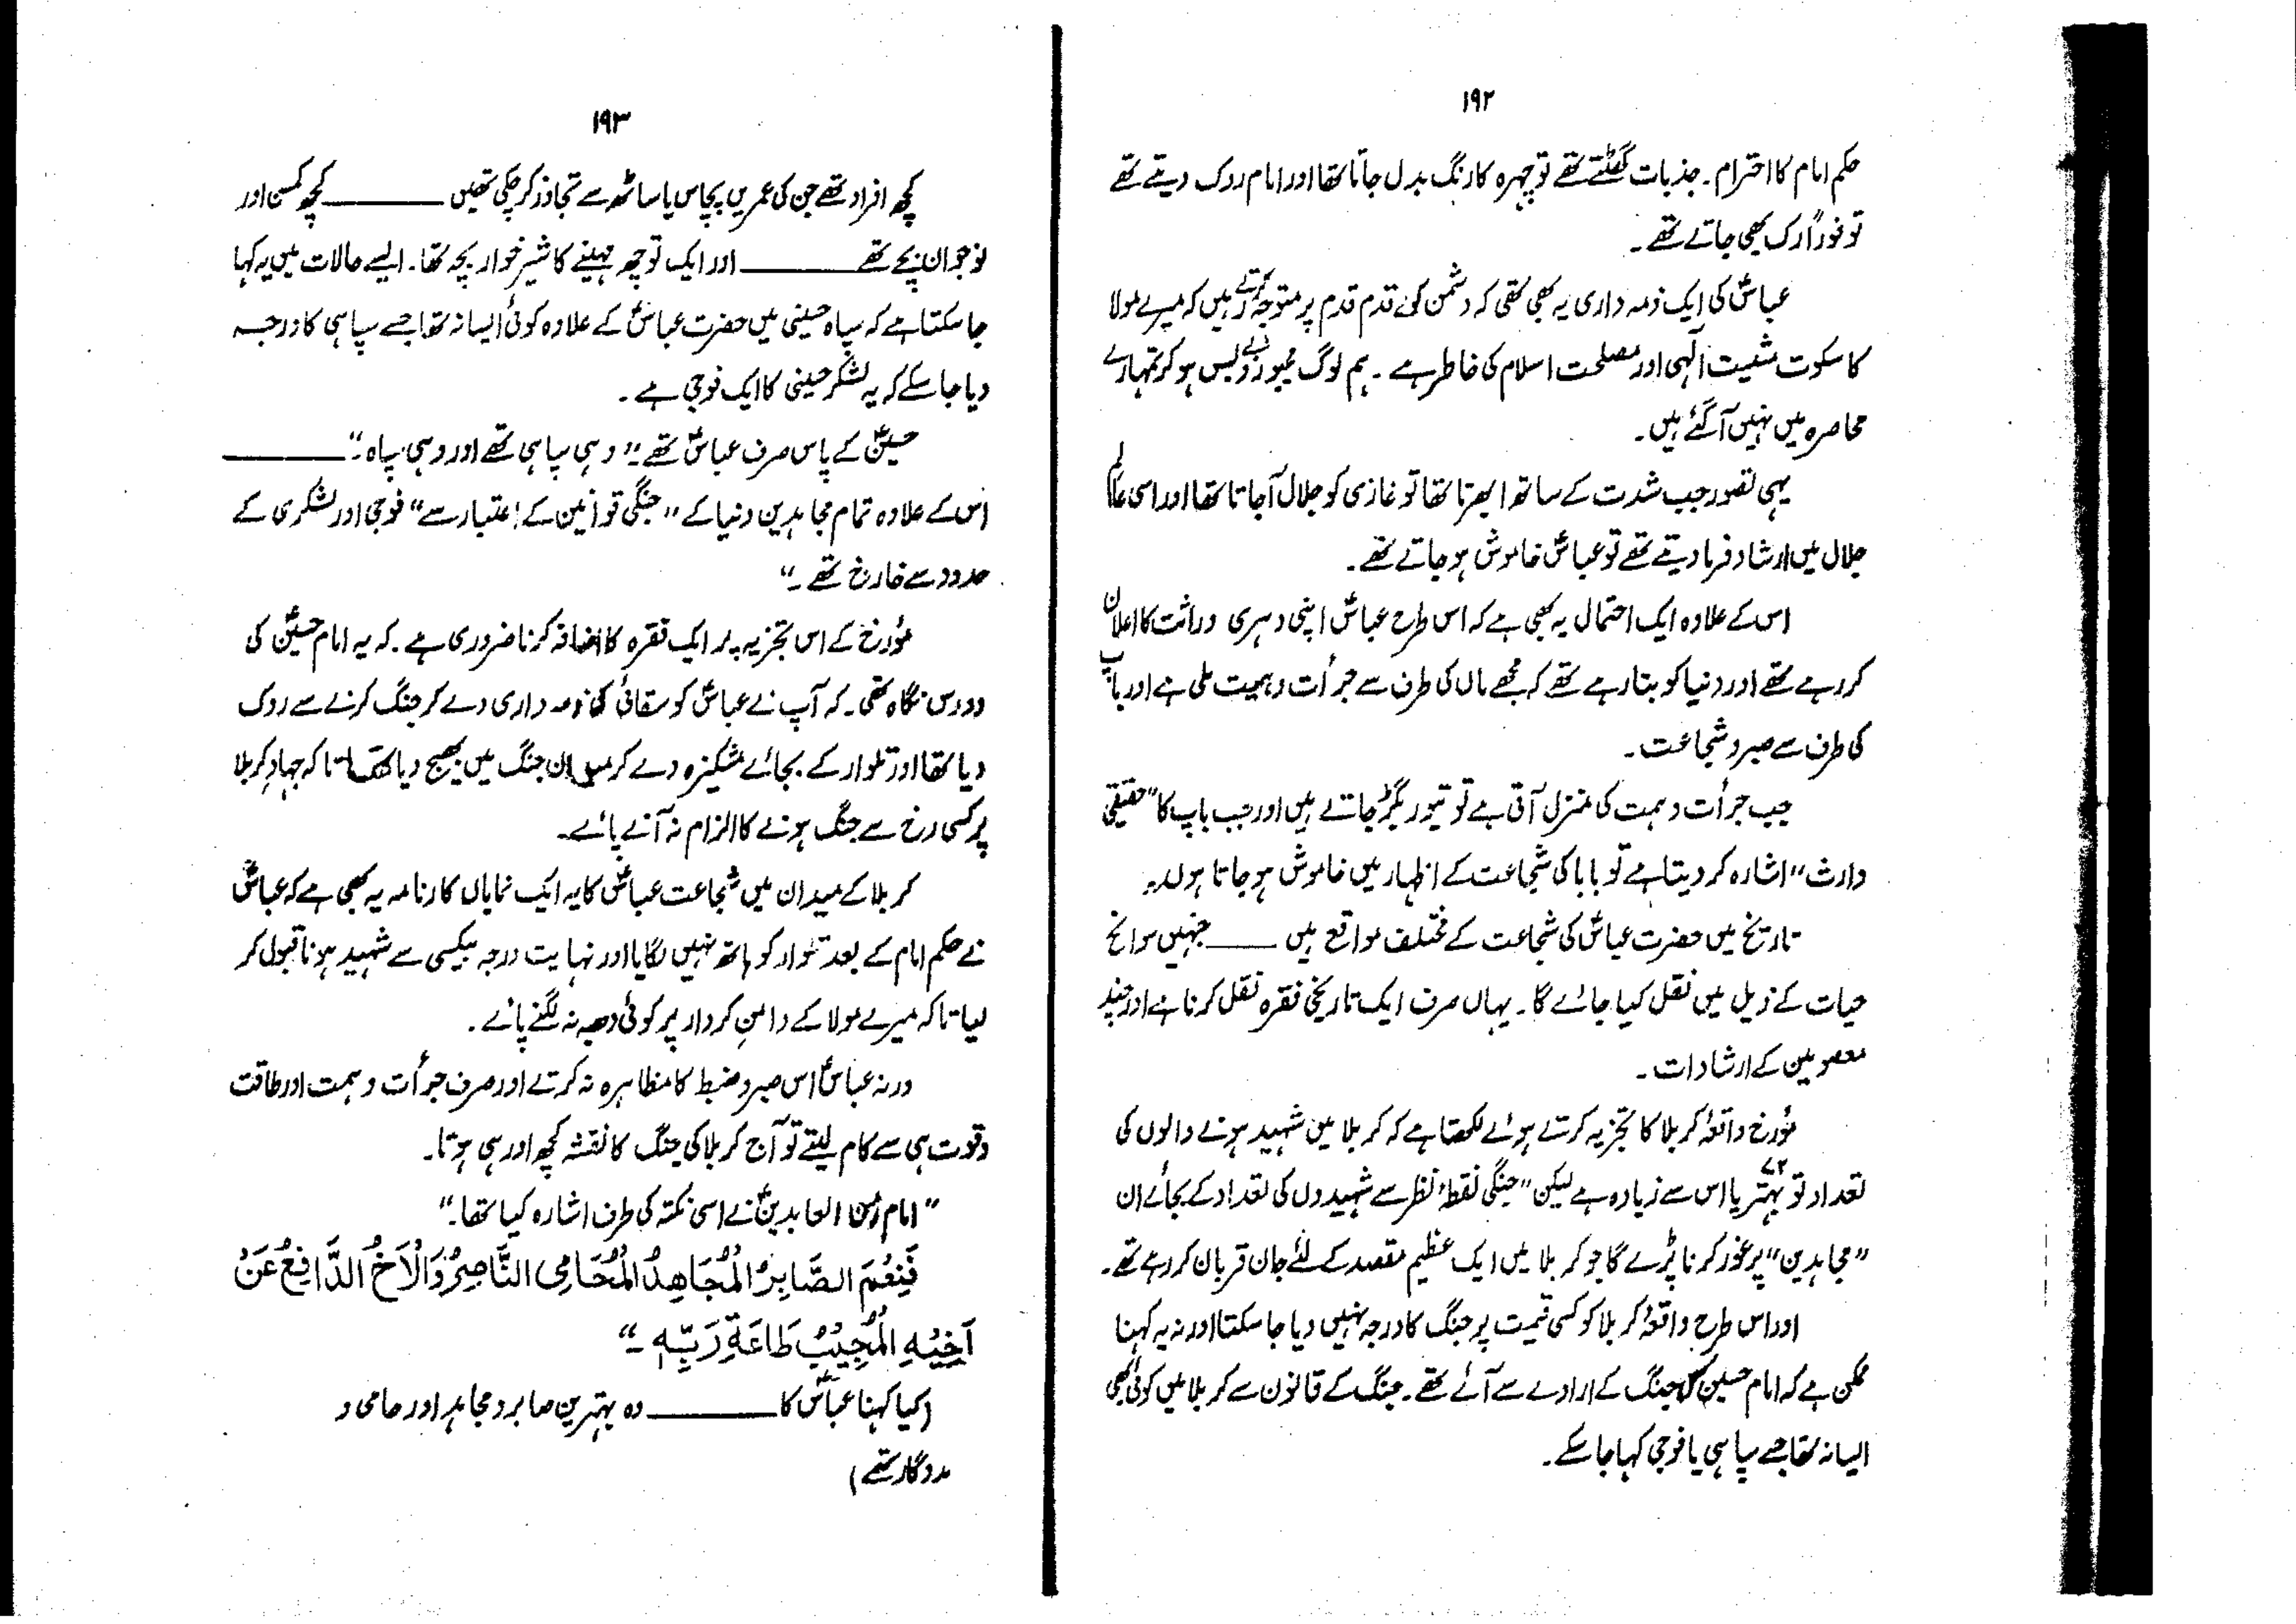 ۱۹۲
حکم امام کا احترام۔ جذبات گھٹتے تھے تو چہرہ کا رنگ بدل جاتا تھا اور امام روک دیتے تھے
تو فوراً رک بھی جاتے تھے۔
عباسؑ کی ایک ذمہ داری یہ بھی تھی کہ دشمن کو قدم قدم پر متوجہ کرتے رہیں کہ میرے مولا
کا سکوت مشیت الٰہی اور مصلحت اسلام کی خاطر ہے۔ ہم لوگ مجبور و بے بس ہو کر تمہارے
محاصرہ میں نہیں آ گئے ہیں۔
یہی تصور جب شدت کے ساتھ ابھرتا تھا تو غازی کو جلال آجاتا تھا اور اسی عالم
جلال میں ارشاد فرما دیتے تھے تو عباسؑ خاموش ہو جاتے تھے۔
اس کے علاوہ ایک احتمال یہ بھی ہے کہ اس طرح عباسؑ اپنی دہری وراثت کا اعلان
کر رہے تھے اور دنیا کو بتا رہے تھے کہ مجھے ماں کی طرف سے جرأت و ہمت ملی ہے اور باپ
کی طرف سے صبر و شجاعت۔
جب جرأت و ہمت کی منزل آتی ہے تو تیور بگڑ جاتے ہیں اور جب باپ کا "حقیقی
وارث" اشارہ کر دیتا ہے تو بابا کی شجاعت کے اظہار میں خاموش ہو جاتا ہوں۔
تاریخ میں حضرت عباسؑ کی شجاعت کے مختلف مواقع ہیں ـــــــ جنہیں سوانح
حیات کے ذیل میں نقل کیا جائے گا۔ یہاں صرف ایک تاریخی فقرہ نقل کرنا ہے اور چند
معصومین کے ارشادات۔
مؤرخ واقعۂ کربلا کا تجزیہ کرتے ہوئے لکھتا ہے کہ کربلا میں شہید ہونے والوں کی
تعداد تو بہتر ۷۲ یا اس سے زیادہ ہے لیکن "جنگی نقطۂ نظر سے شہیدوں کی تعداد کے بجائے ان
"مجاہدین" پر غور کرنا پڑے گا جو کربلا میں ایک عظیم مقصد کے لئے جان قربان کر رہے تھے۔
اور اس طرح واقعۂ کربلا کو کسی قیمت پر جنگ کا درجہ نہیں دیا جا سکتا اور نہ یہ کہنا
ممکن ہے کہ امام حسینؑ جنگ کے ارادے سے آئے تھے۔ جنگ کے قانون سے کربلا میں کوئی بھی
ایسا نہ تھا جسے سپاہی یا فوجی کہا جا سکے۔
۱۹۳
کچھ افراد تھے جن کی عمریں پچاس یا ساٹھ سے تجاوز کر چکی تھیں ـــــــ کچھ کمسن اور
نوجوان بچے تھے ـــــــ اور ایک تو چھ مہینے کا شیر خوار بچہ تھا۔ ایسے حالات میں یہ کہا
جا سکتا ہے کہ سپاہ حسینی میں حضرت عباسؑ کے علاوہ کوئی ایسا نہ تھا جسے سپاہی کا درجہ
دیا جا سکے کہ یہ لشکر حسینی کا ایک فوجی ہے۔
حسینؑ کے پاس صرف عباسؑ تھے۔" وہی سپاہی تھے اور وہی سپاہ۔" ـــــــ
اس کے علاوہ تمام مجاہدین دنیا کے "جنگی قوانین کے اعتبار سے" فوجی اور لشکری کے
حدود سے خارج تھے۔"
مؤرخ کے اس تجزیہ پر ایک فقرہ کا اضافہ کرنا ضروری ہے۔ کہ یہ امام حسینؑ کی
دور رس نگاہ تھی۔ کہ آپ نے عباسؑ کو سقائی کی ذمہ داری دے کر جنگ کرنے سے روک
دیا تھا اور تلوار کے بجائے مشکیزہ دے کر میدان جنگ میں بھیج دیا تھا تا کہ جہادِ کربلا
پر کسی رخ سے جنگ ہونے کا الزام نہ آنے پائے۔
کربلا کے میدان میں شجاعت عباسؑ کا یہ ایک نمایاں کارنامہ یہ بھی ہے کہ عباسؑ
نے حکم امام کے بعد تلوار کو ہاتھ نہیں لگایا اور نہایت درجہ بیکسی سے شہید ہونا قبول کر
لیا تاکہ میرے مولا کے دامنِ کردار پر کوئی دھبہ نہ لگنے پائے۔
ورنہ عباسؑ اس صبر و ضبط کا مظاہرہ نہ کرتے اور صرف جرأت و ہمت اور طاقت
و قوت ہی سے کام لیتے تو آج کربلا کی جنگ کا نقشہ کچھ اور ہی ہوتا۔
"امام زین العابدینؑ نے اسی نکتہ کی طرف اشارہ کیا تھا۔"
فَنِعْمَ الصَّابِرُ الْمُجَاهِدُ الْمُحَامِی النَّاصِرُ وَالْاَخُ الدَّافِعُ عَنْ
اَخِیْهِ الْمُجِیْبُ طَاعَةِ رَبِّهٖ۔"
(کیا کہنا عباسؑ کا ـــــــ وہ بہترین صابر و مجاہد اور حامی و
مددگار تھے)